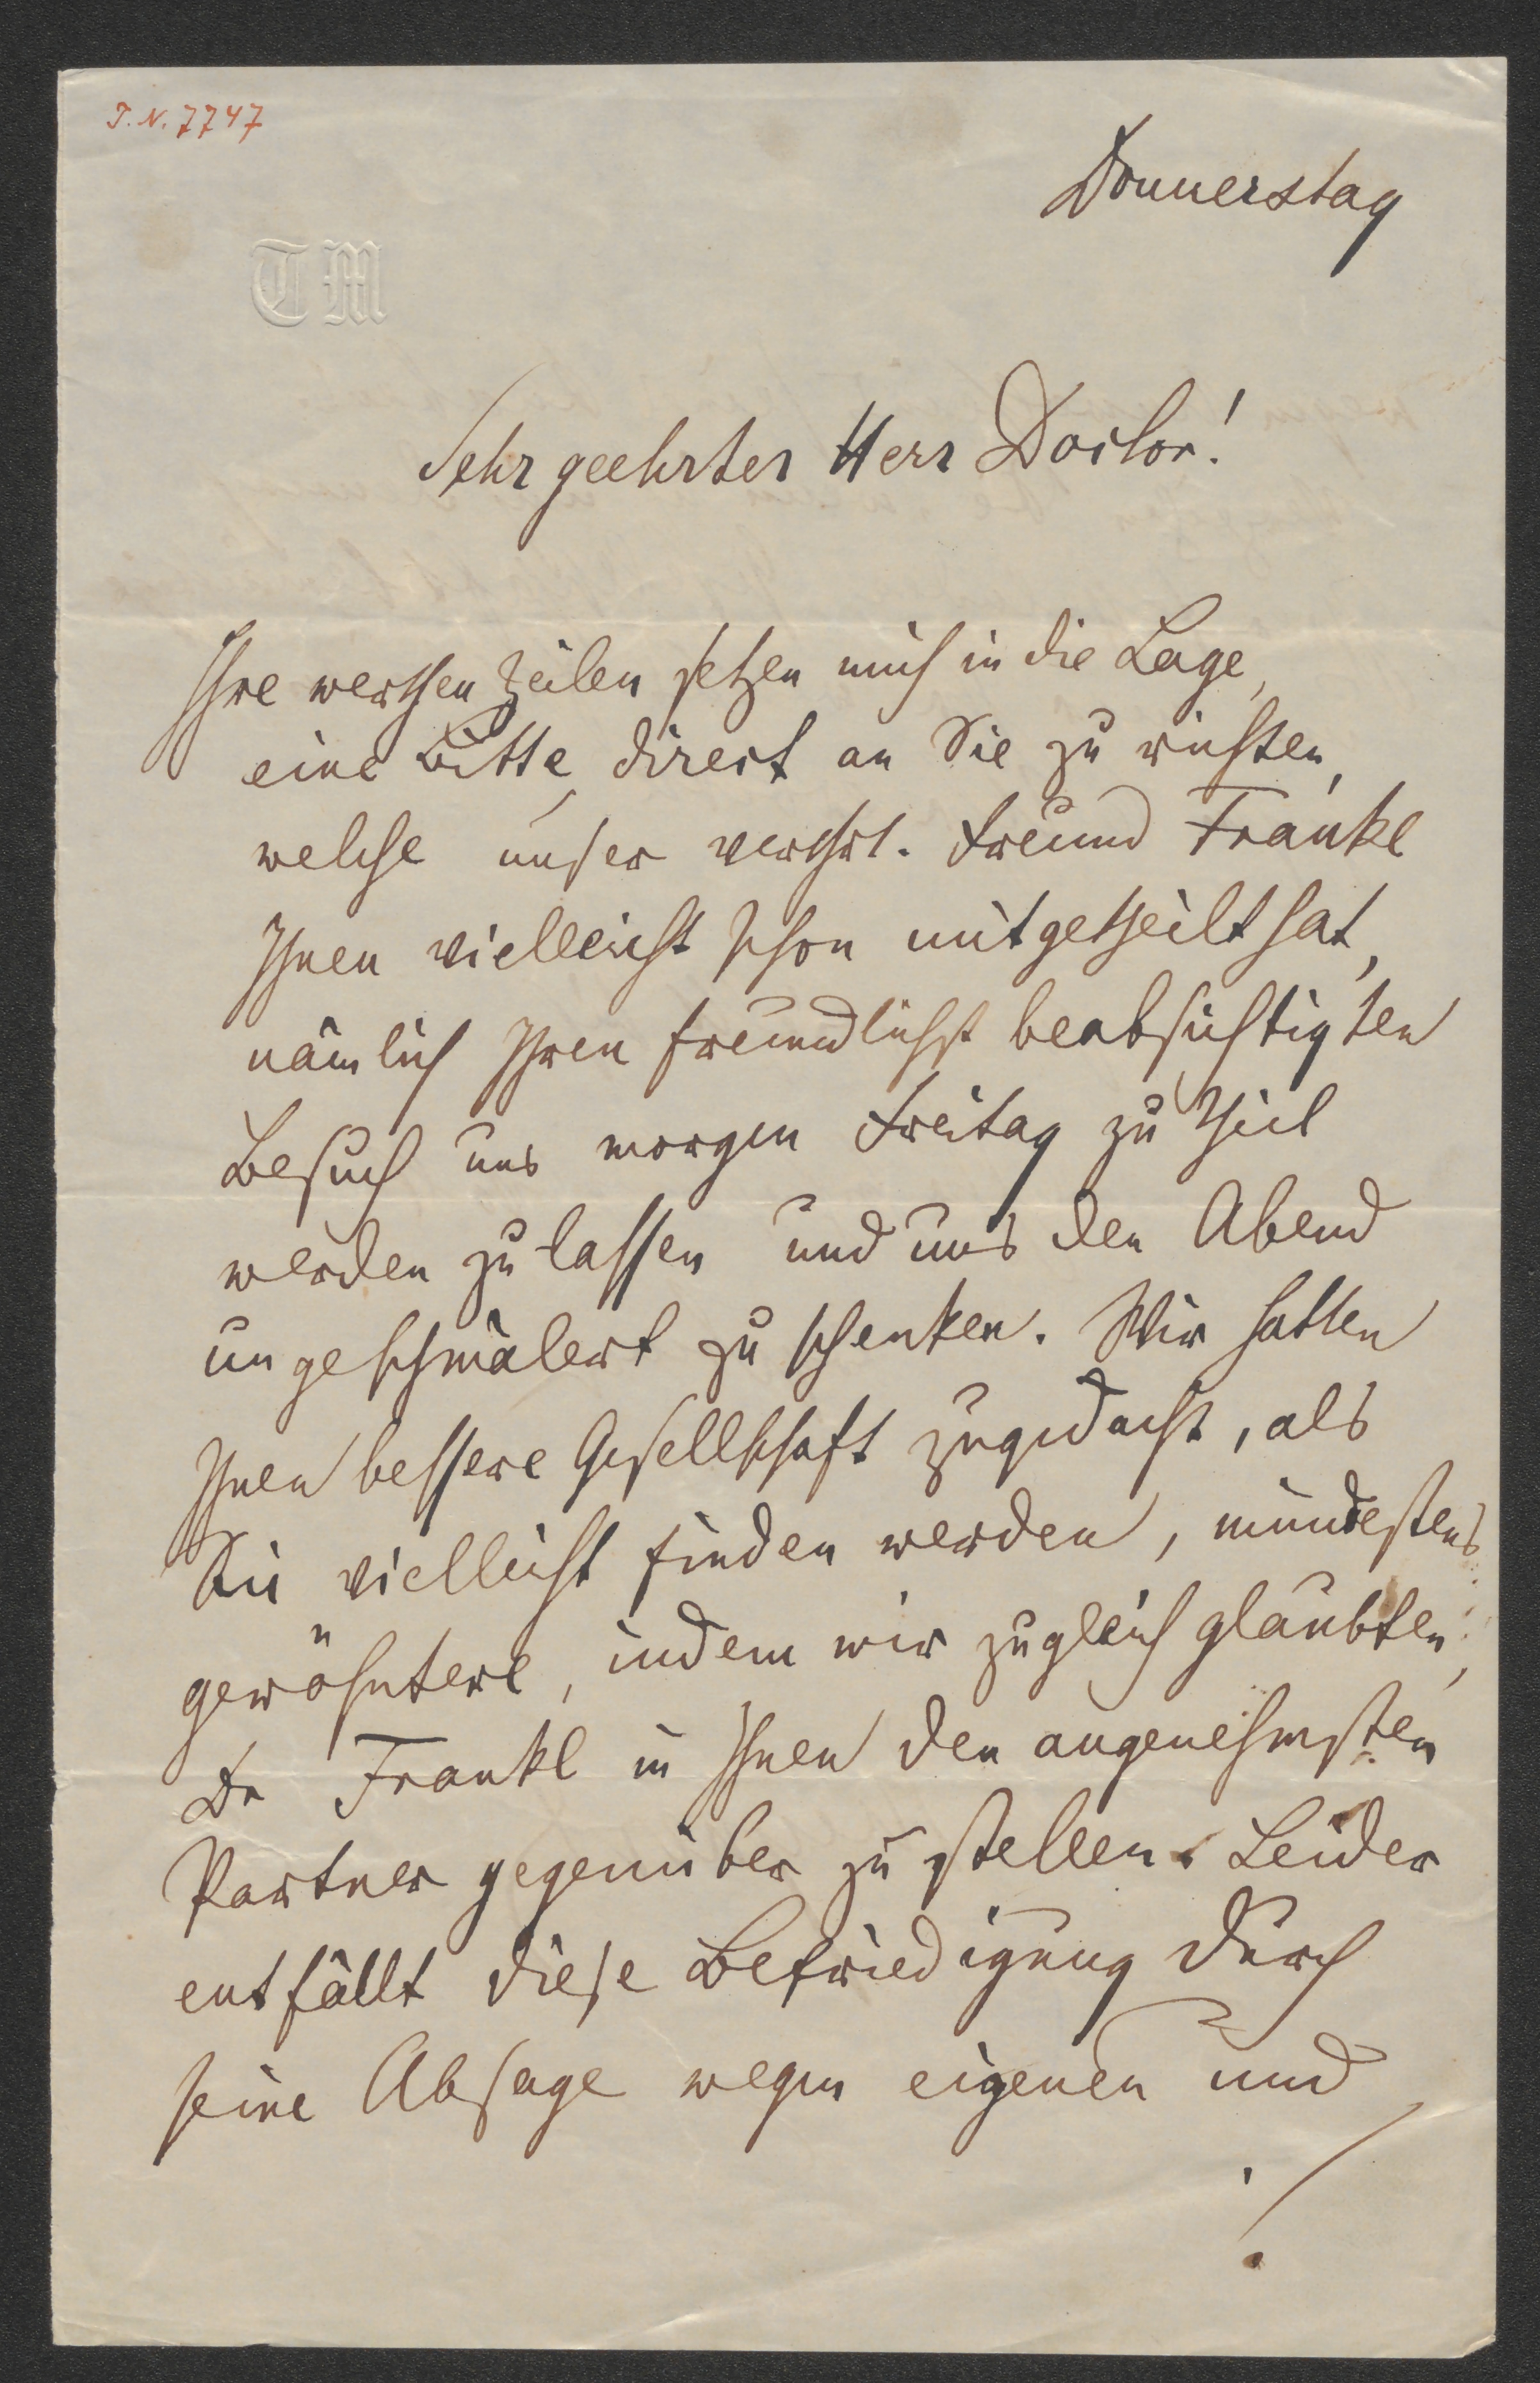 I.N. 7747
Donnerstag
TM
Sehr geehrter Herr Doctor!
Ihre werthen Zeilen setzen mich in die Lage,
eine Bitte direct an Sie zu richten,
welche unser verehrt. Freund Frankl
Ihnen vielleicht schon mitgetheilt hat,
nämlich Ihren freundlichst beabsichtigten
Besuch uns morgen Freitag zu Theil
werden zu lassen und uns den Abend
ungeschmälert zu schenken. Wir hatten
Ihnen bessere Gesellschaft zugedacht, als
Sie vielleicht finden werden, mindestens
gewöhntere, indem wir zugleich glaubten,
Dr Frankl in Ihnen den angenehmsten
Partner gegenüber zu stellen. Leider
entfällt diese Befriedigung durch
seine Absage wegen eigenen und
./.